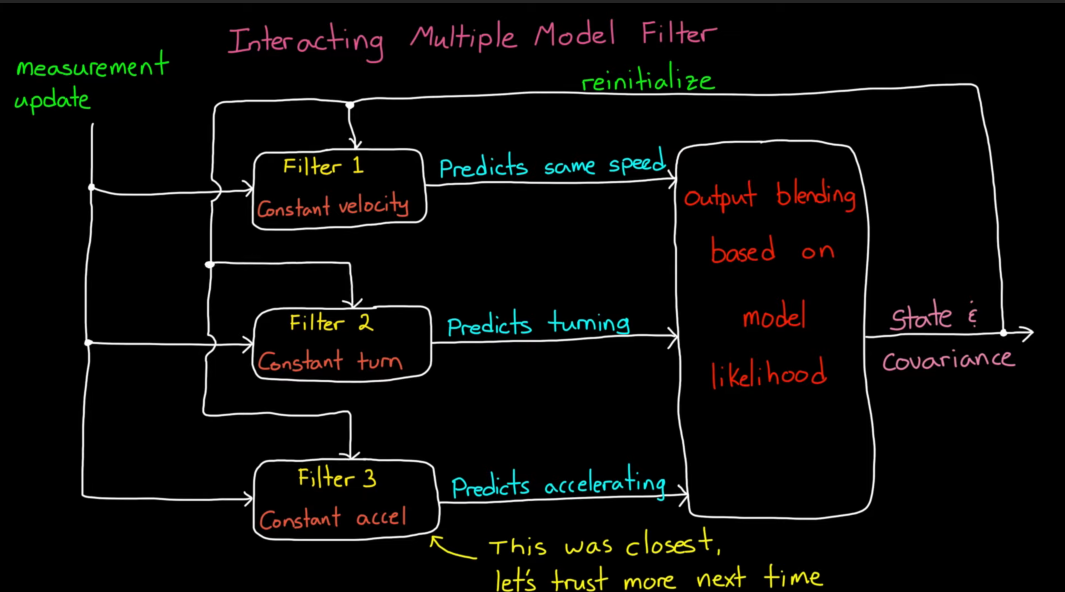 Interacting Multiple Model Filter
measurement
update
reinitialize
Filter 1
Constant velocity
Predicts same speed
Filter 2
Constant turn
Predicts turning
Filter 3
Constant accel
Predicts accelerating
Output blending
based on
model
likelihood
State &
Covariance
This was closest,
let's trust more next time